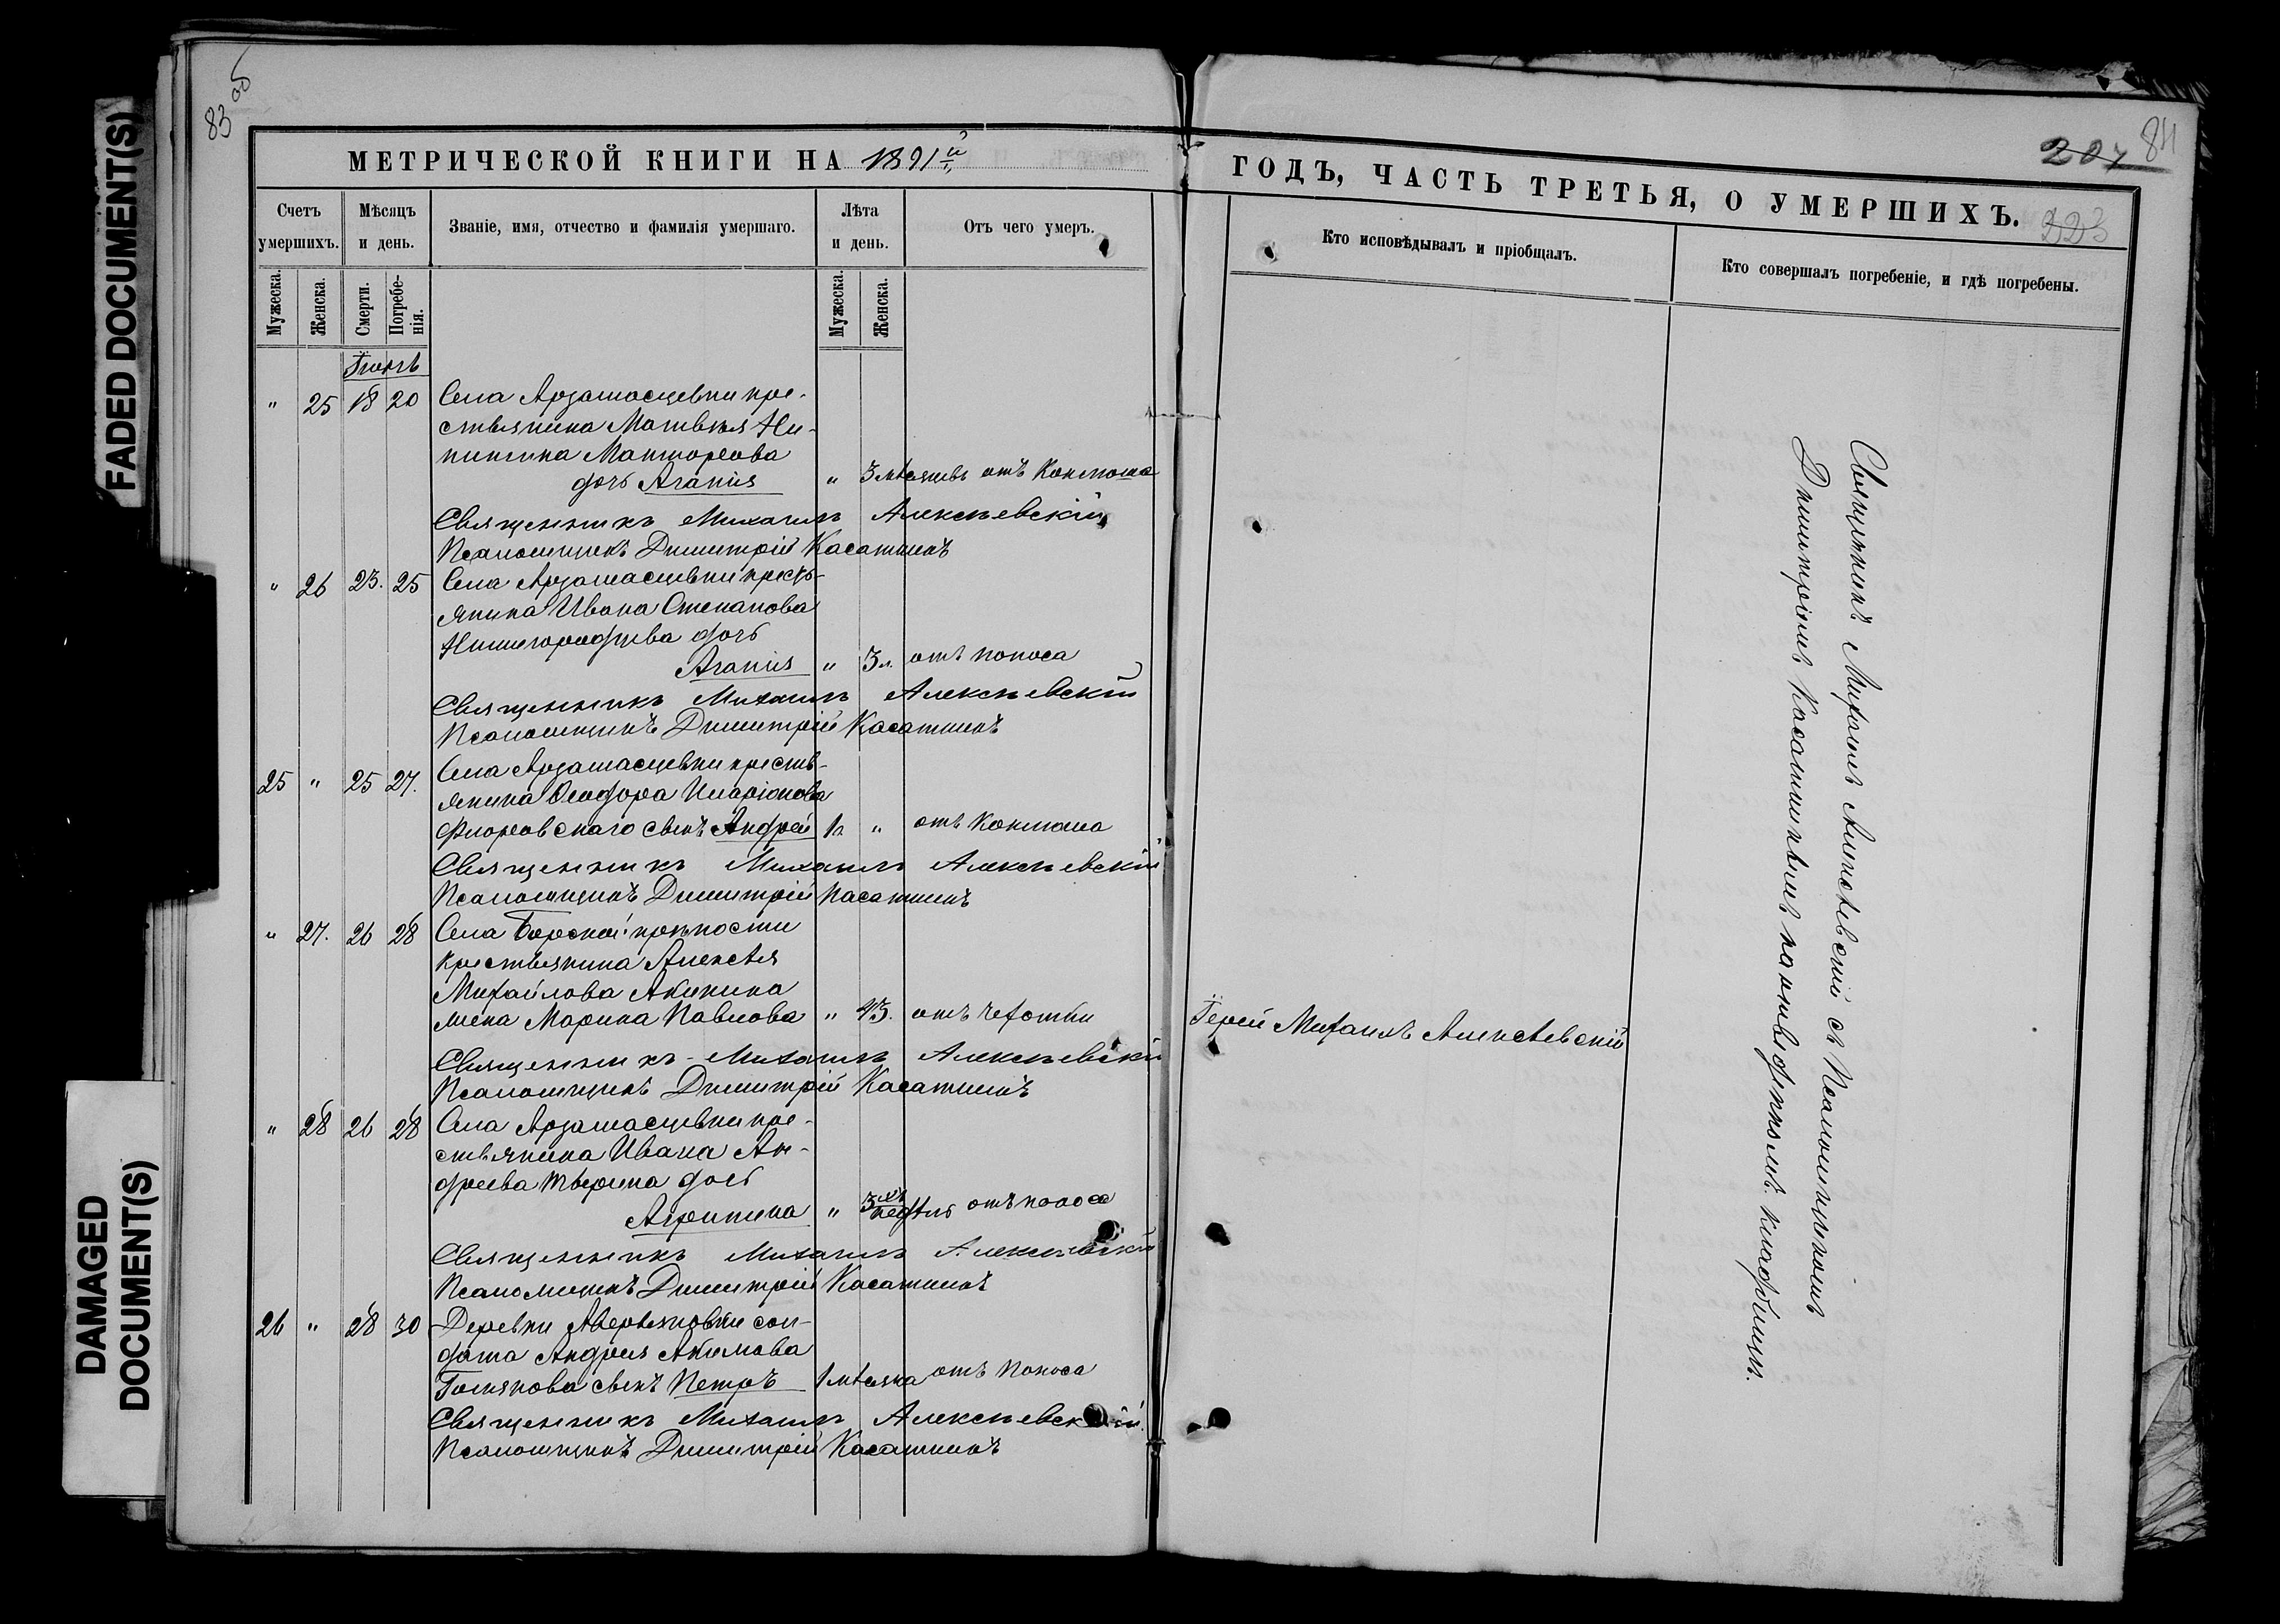 FADED DOCUMENT(S)
DAMAGED
DOCUMENT(S)
83 об
МЕТРИЧЕСКОЙ КНИГИ НА 1891й
Счетъ умершихъ.
Мѣсяцъ и день.
Званіе, имя, отчество и фамилія умершаго.
Лѣта и день.
Отъ чего умеръ.
Мужеска.
Женска.
Смерти.
Погребенія.
Мужеска.
Женска.
" 25 18 20 Села Арзамасцевки кре-
стьянина Матвѣя Ни-
дочь Агапія " 3 мѣсяцъ отъ Коклюша
Священникъ Михаилъ Алексѣевскій
Псаломщикъ Димитрій Касаткинъ
" 26 23. 25 Села Арзамасцевки кресть-
янина Ивана Степанова
Нижегородцева дочь
Агапія " 3 л. отъ поноса
Священникъ Михаилъ Алексѣевскій
Псаломщикъ Димитрій Касаткинъ
25 " 25 27. Села Арзамасцевки крестъ-
янина Ѳеодора Иларіонова
Флоровскаго сынъ Андрей 1 г. " отъ Коклюша
Священникъ Михаилъ Алексѣевскій
Псаломщикъ Димитрій Касаткинъ
" 27. 26 28 Села Борской крѣпости
крестьянина Алексѣя
Михайлова Акинина
жена Марина Павлова " 43. отъ чахотки
Священникъ Михаилъ Алексѣевскій
Псаломщикъ Димитрій Касаткинъ
" 28 26 28 Села Арзамасцевки кре-
стьянина Ивана Ан-
дреева Тверина дочь
Агрипина " 3хъ недѣль отъ поноса
Священникъ Михаилъ Алексѣевскій
Псаломщикъ Димитрій Касаткинъ
26 " 28 30 Деревни Аверьяновки сол-
дата Андрея Акимова
сынъ Петръ 1 мѣсяца отъ поноса
Священникъ Михаилъ Алексѣевскій
Псаломщикъ Димитрій Касаткинъ
207 84
ГОДЪ, ЧАСТЬ ТРЕТЬЯ, О УМЕРШИХЪ. 223
Кто исповѣдывалъ и пріобщалъ.
Кто совершалъ погребеніе, и гдѣ погребены.
Іерей Михаилъ Алексѣевскій
Священникъ Михаилъ Алексѣевскій съ Псаломщикомъ
Димитріемъ Касаткинымъ на отведенномъ кладбищѣ.